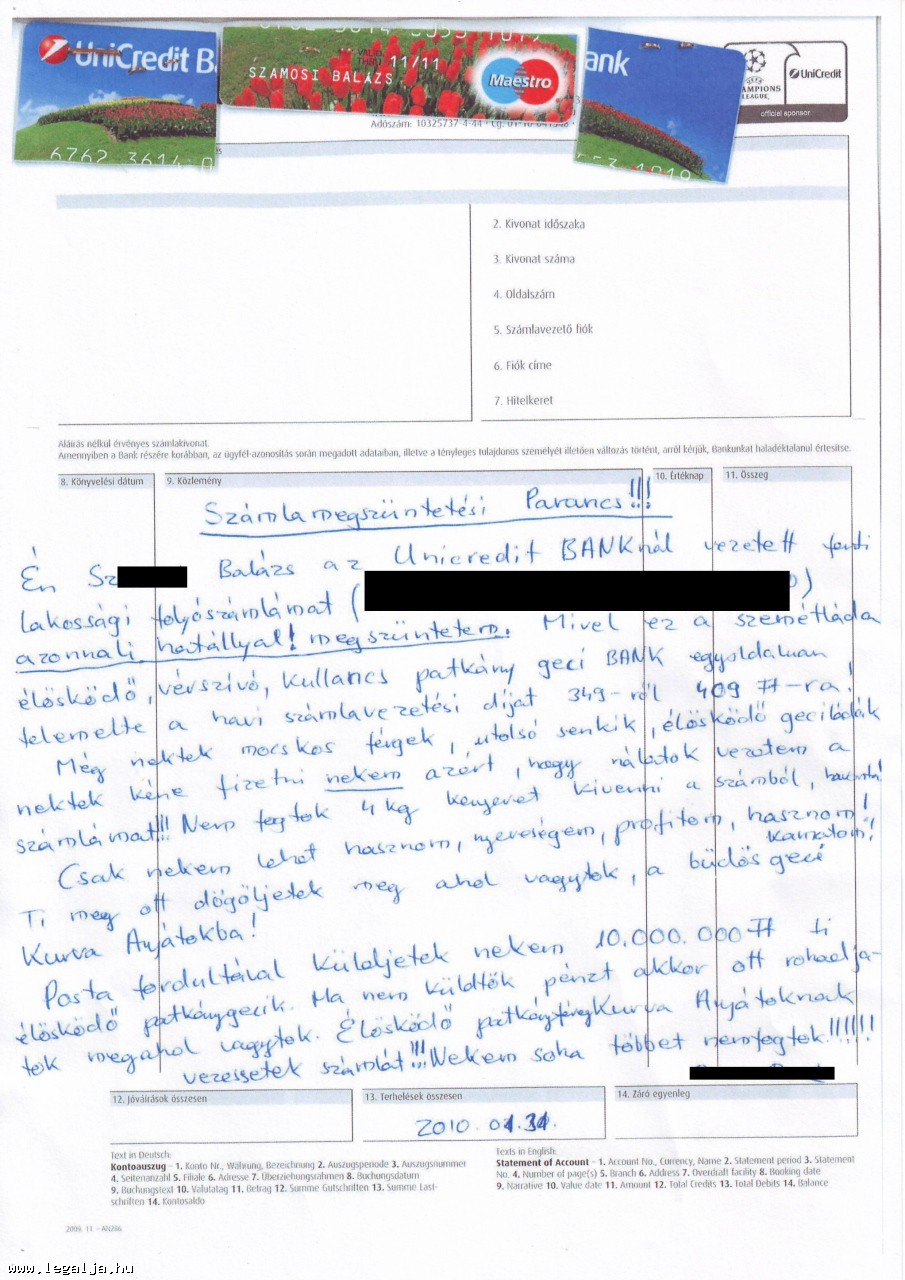 UniCredit B
VALID
THRU 11/11
SZAMOSI BALÁZS
Maestro
ank
CHAMPIONS
LEAGUE
UniCredit
official sponsor
6762 3614 0
Adószám: 10325737-4-44 · Cg. 01-10-041348 ·
2. Kivonat időszaka
3. Kivonat száma
4. Oldalszám
5. Számlavezető fiók
6. Fiók címe
7. Hitelkeret
Aláírás nélkül érvényes számlakivonat.
Amennyiben a Bank részére korábban, az ügyfél-azonosítás során megadott adataiban, illetve a tényleges tulajdonos személyét illetően változás történt, arról kérjük, Bankunkat haladéktalanul értesítse.
8. Könyvelési dátum
9. Közlemény
10. Értéknap
11. Összeg
Számlamegszüntetési Parancs!!!
Én Sz Balázs az Unicredit BANKnál vezetett fenti
lakossági folyószámlámat ( )
azonnali hatállyal! megszüntetem. Mivel ez a szemétláda
élősködő, vérszívó, kullancs patkány geci BANK egyoldalúan
felemelte a havi számlavezetési díját 349-ről 409 Ft-ra!
Még nektek mocskos férgek, utolsó senkik, élősködő geciládák
nektek kéne fizetni nekem azért, hogy nálatok vezetem a
számlámat!!! Nem fogtok 4 kg kenyeret kivenni a számból, havonta!
Csak nekem lehet hasznom, nyereségem, profitom, hasznom!
kamatom!
Ti meg ott dögöljetek meg ahol vagytok, a büdös geci
Kurva Anyátokba!
Posta fordultával küldjetek nekem 10.000.000 Ft ti
élősködő patkánygecik. Ha nem küldtök pénzt akkor ott rohadja-
tok megahol vagytok. Élősködő patkányféregKurva Anyátoknak
vezessetek számlát!!! Nekem soha többet nemfogtok!!!!!!
12. Jóváírások összesen
13. Terhelések összesen
14. Záró egyenleg
2010. 01.31.
Text in Deutsch:
Kontoauszug – 1. Konto Nr., Währung, Bezeichnung 2. Auszugsperiode 3. Auszugsnummer
4. Seitenanzahl 5. Filiale 6. Adresse 7. Überziehungsrahmen 8. Buchungsdatum
9. Buchungstext 10. Valutatag 11. Betrag 12. Summe Gutschriften 13. Summe Last-
schriften 14. Kontosaldo
Texts in English:
Statement of Account – 1. Account No., Currency, Name 2. Statement period 3. Statement
No. 4. Number of page(s) 5. Branch 6. Address 7. Overdraft facility 8. Booking date
9. Narrative 10. Value date 11. Amount 12. Total Credits 13. Total Debits 14. Balance
2009. 11 – AN286
www.legalja.hu